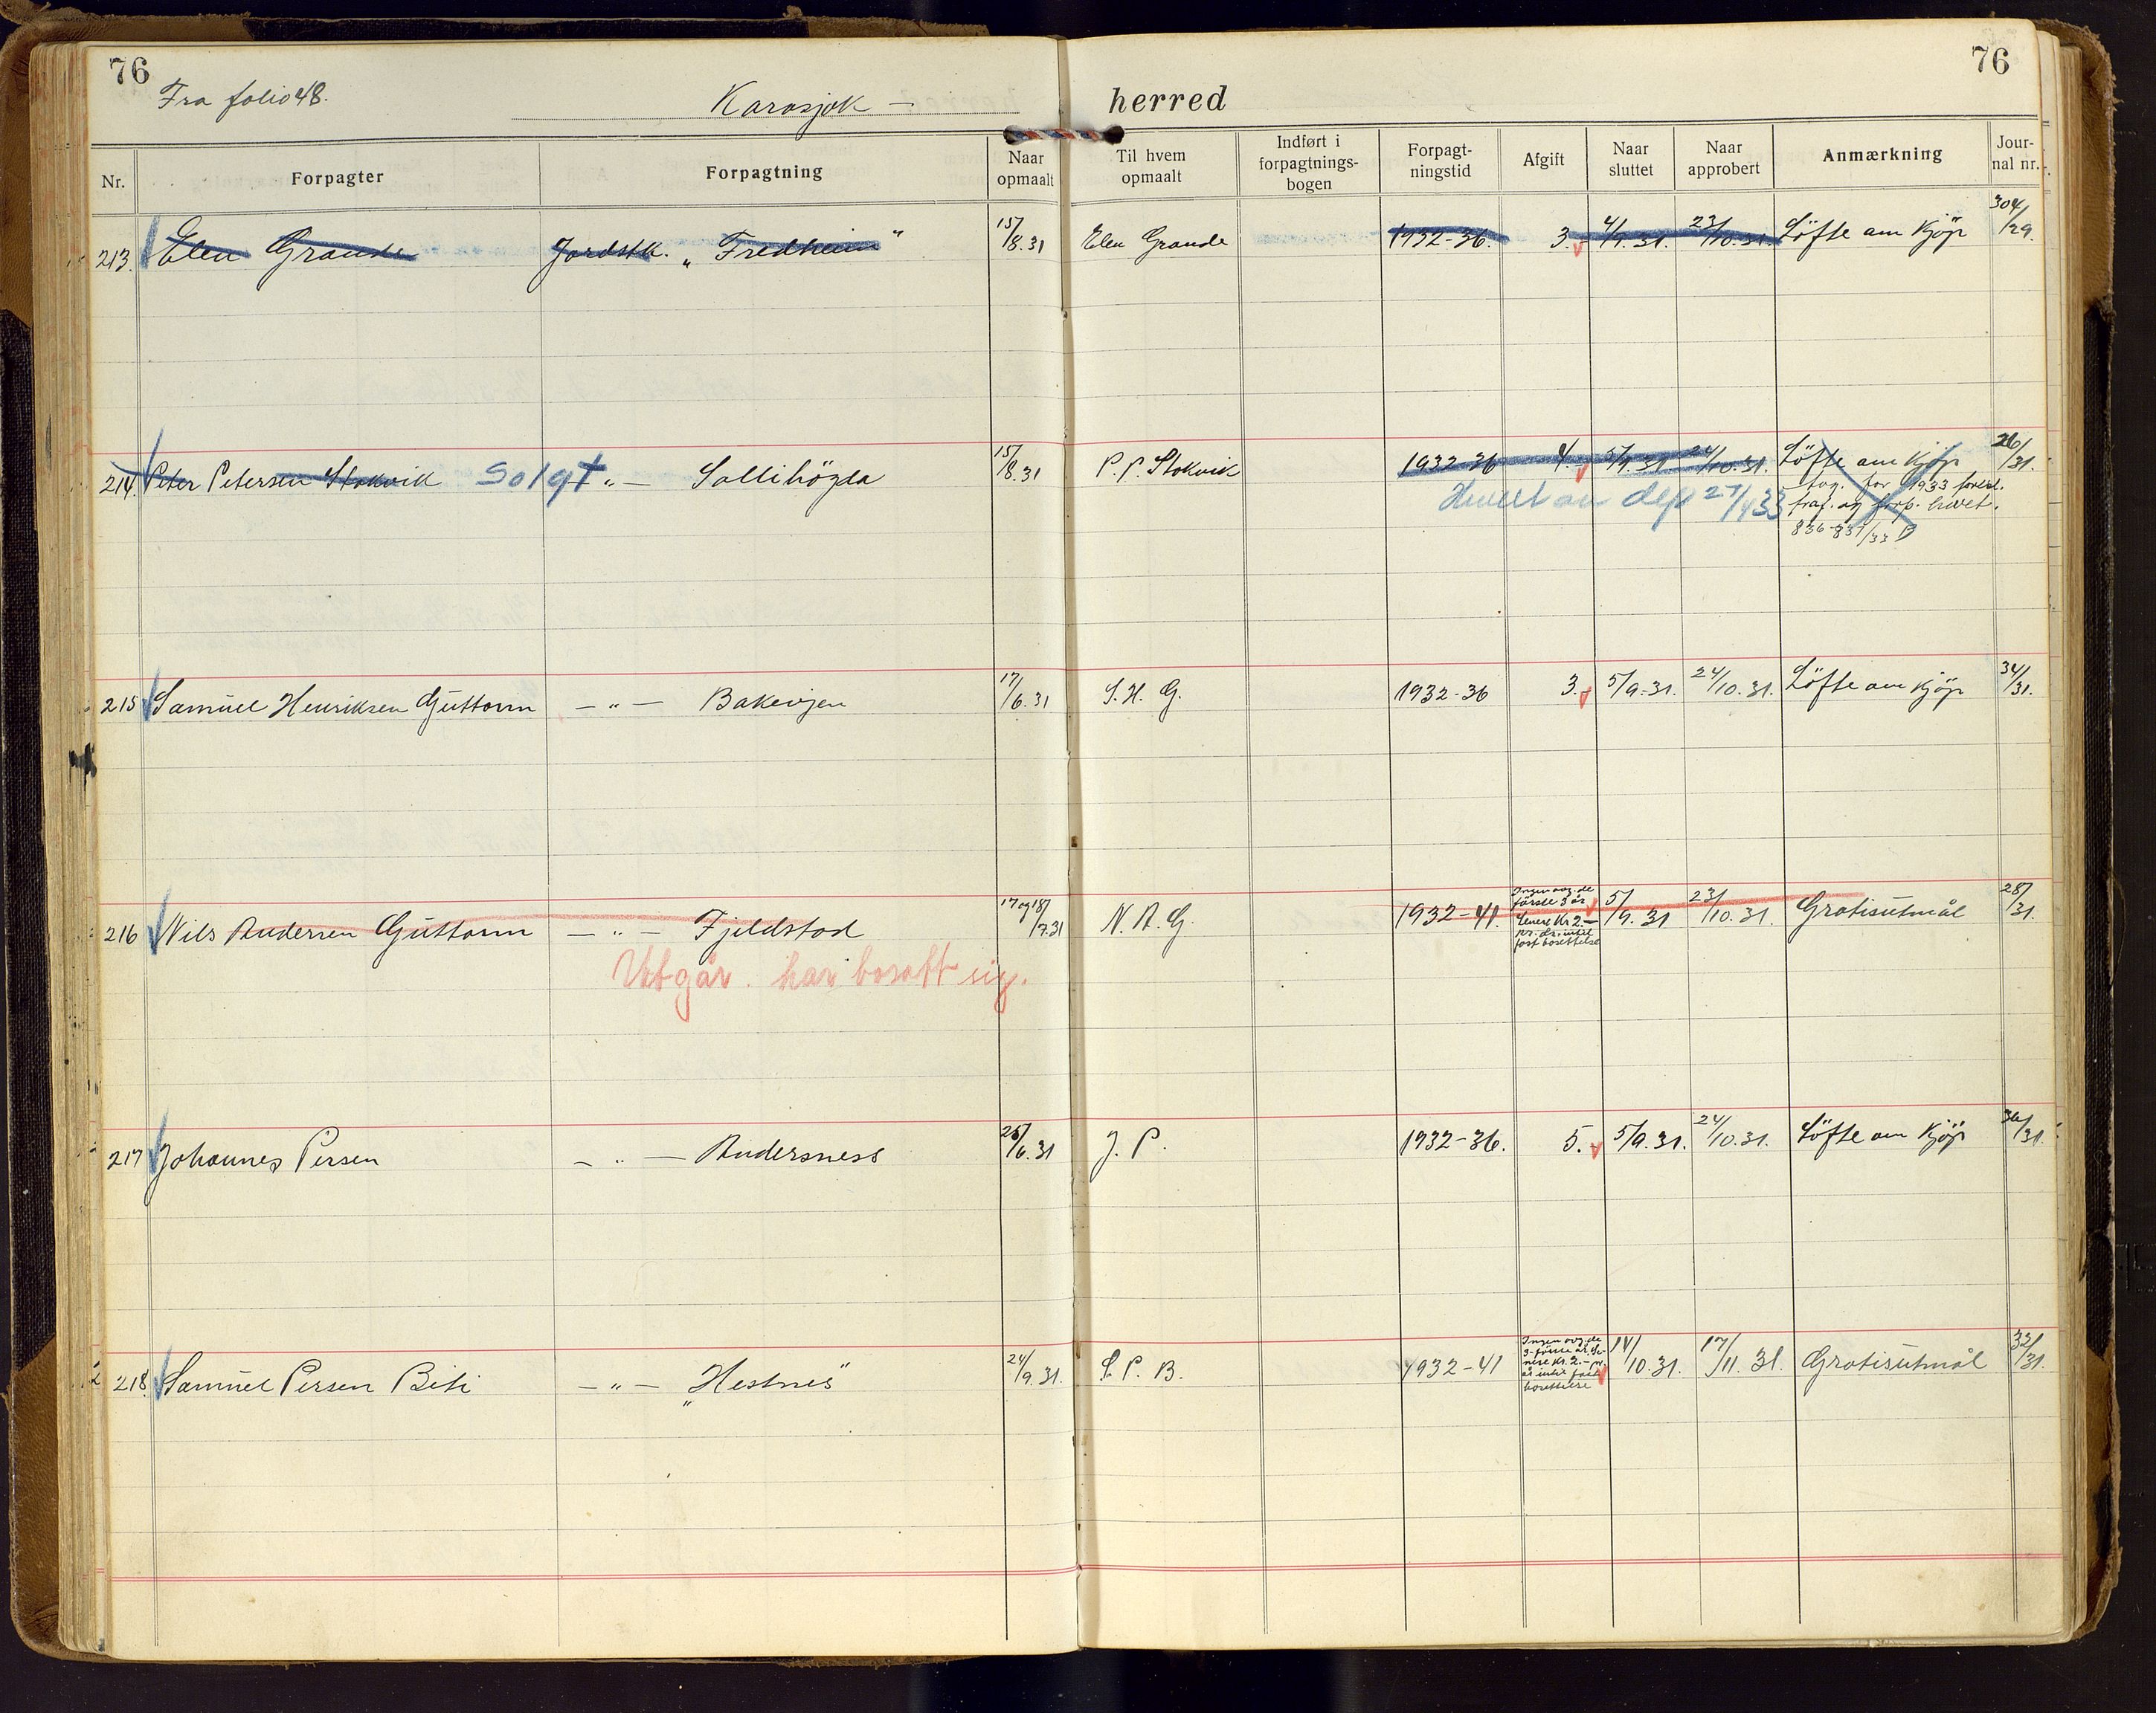 76
76
Fra folio 48.
Karasjok —
herred
Nr.
Forpagter
Forpagtning
Naar opmaalt
Til hvem opmaalt
Indført i forpagtnings-bogen
Forpagt-ningstid
Afgift
Naar sluttet
Naar approbert
Anmærkning
Jour-nal nr.
213. Elen Grande Jordstk. „Fredheim" 15/8.31 Elen Grande 1932-36. 3.- 4/9.31. 23/10.31. Löfte om Kjöp 304/29.
214. Peter Petersen Stokvik Solgt „ — Sollihögda 15/8.31 P. P. Stokvik 1932-36 4.- 5/9.31. 24/10.31. Löfte om Kjöp 26/31.
Hevet av dep 27/4 33
for 1933
og forp. hevet.
836-837/33
215 Samuel Henriksen Guttorm — „ — Bakevjen 17/6.31 S. H. G. 1932-36 3.- 5/9.31. 24/10.31. Löfte om Kjöp 34/31.
216 Nils Andersen Guttorm — „ — Fjeldstad 17 og 18/7.31 N. A. G. 1932-41. 5/9.31 23/10.31. Gratisutmål 28/31.
Ingen avg. de
förste 3 år
Senere Kr. 2.—
pr. år inntil
fast bosettelse
Utgår. har bosatt sig.
217 Johannes Persen — „ — Andersness 25/6.31 J. P. 1932-36. 5.- 5/9.31. 24/10.31. Löfte om Kjöp 36/31.
218. Samuel Persen Biti — „ — „Hestnes" 24/9.31. S. P. B. 1932-41 14/10.31. 17/11.31. Gratisutmål 32/31.
Ingen avg. de
3 förste år. Se-
nere Kr. 2.— pr.
år inntil fast
bosettelse